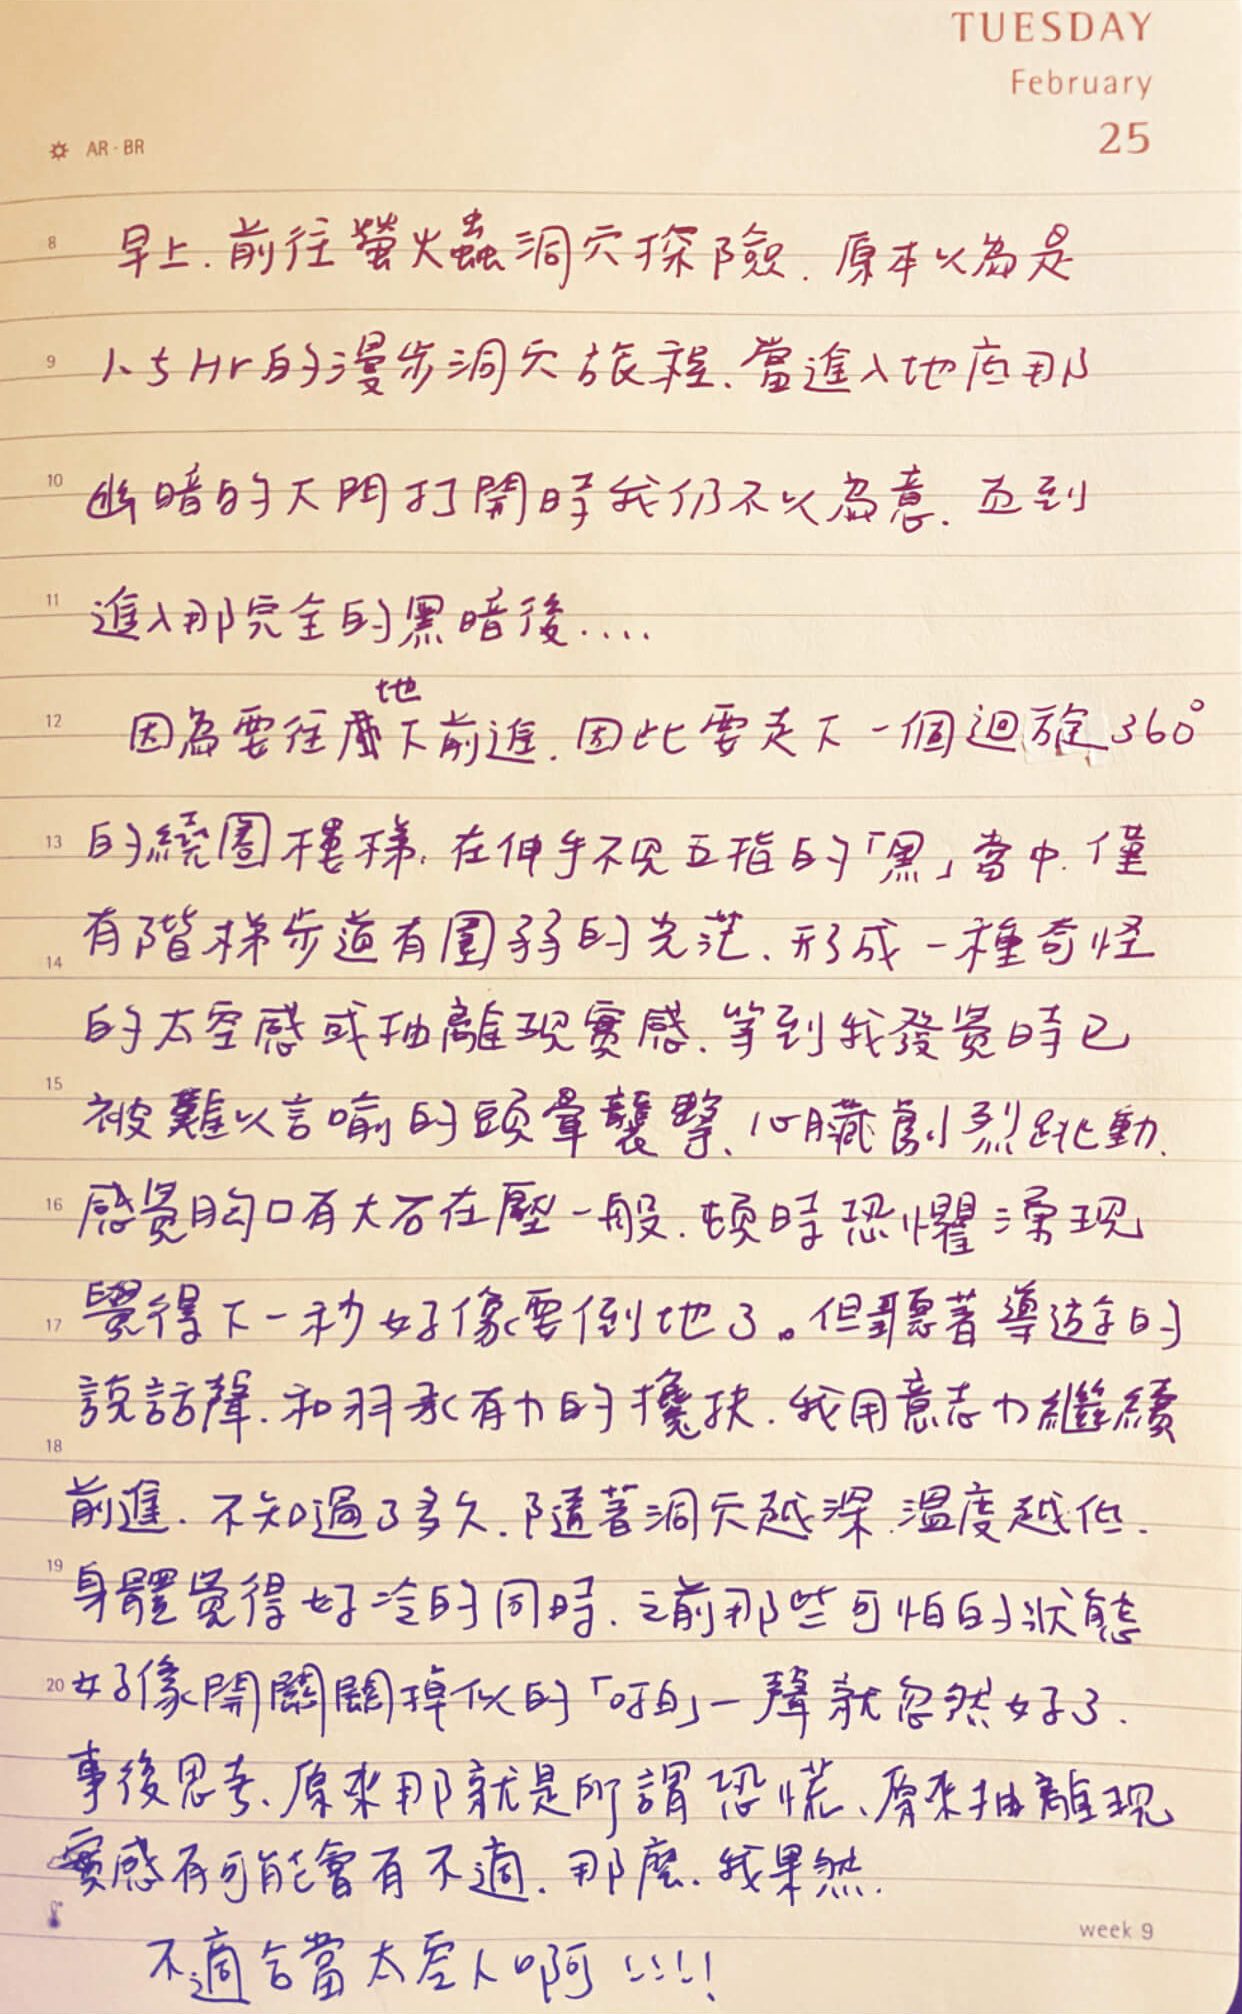 TUESDAY
February
25
AR - BR
8 早上.前往螢火蟲洞穴探險.原本以為是
9 1.5Hr的漫步洞穴旅程、當進入地底那
10 幽暗的大門打開時我仍不以為意.直到
11 進入那完全的黑暗後....
地
12 因為要往下前進.因此要走下一個迴旋360°
13 的繞圈樓梯.在伸手不見五指的「黑」當中.僅
有階梯步道有圍弱的光茫、形成一種奇怪
14
的太空感或抽離現實感.等到我發覺時已
15
被難以言喻的頭暈襲擊、心臟劇烈跳動.
16 感覺胸口有大石在壓一般.頓時恐懼湧現
17 覺得下一秒好像要倒地了。但聽著導遊的
說話聲.和羽承有力的攙扶.我用意志力繼續
18
前進.不知過了多久.隨著洞穴越深.溫度越低.
19 身體覺得好冷的同時.之前那些可怕的狀態
20 好像開關關掉似的「啪」一聲就忽然好了.
事後思考、原來那就是所謂恐慌、原來抽離現
實感有可能會有不適.那麼.我果然.
week 9
不適合當太空人啊!!!!